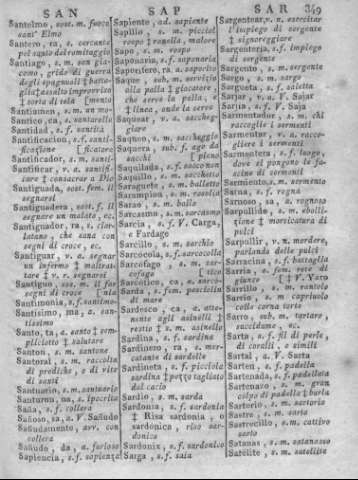 SAN SAP SAR 349
Santelmo, sost. m. fuoco
sant' Elmo
Santero, ra, s. cercante
pel vaso di romitaggio
Santiago, s. m. san gia-
como, grido di guerra
degli spagnuoli ‡ batta-
glia ‡ assalto improvviso
‡ sorta di tela
Santiamen, s. m. un mo
Santico, ca, a. santarello
Santidad, s. f. santità
Santificacion, s. f. santi-
ficazione [ficatore
Santificador, s. m. santi-
Santificar, v. a. santifi-
care ‡ consacrar a Dio
Santiguada, sost. fem. il
segnarsi
Santiguadera, sost. f. il
segnare un malato, ec.
Santiguador, ra, s. ciar-
latano, che sana con
segni di croce, ec.
Santiguar, v. a. segnar
un infermo ‡ maltrat-
tare ‡ v. r. segnarsi
Santiguo, sost. m. il far
segni di croce
Santimonia, s. f. santimo-
Santísimo, ma, a. san-
tissimo
Santo, ta, a. santo ‡ sem-
pliciotto ‡ salutare
Santon, s. m. santone
Santoral, s. m. raccolta
di prediche, o di vite
di santi
Santuario, s. m. santuario
Santurron, na, s. ipocrita
Saña, s. f. collera
Sañoso, sa, a. V. Sañudo
Sañudamente, avv. con
collera
Sañudo, da, a. furioso
Sapiencia, s. f. sapienza
Sapiente, ad. sapiente
Sapillo, s. m. piccol
rospo ‡ ranella, malore
Sapo, s. m. rospo
Saponaria, s. f. saponaria
Saporifero, ra, a. saporito
Saque, sub. m. servizio
alla palla ‡ giocatore,
che serve la palla, e
‡ linea, onde la serve
Saquear, v. a. saccheg-
giare
Saqueo, s. m. saccheggio
Saquera, sub. f. ago da
sacchi [pieno
Saquilada, s. f. sacco non
Saquillo, s. m. sacchetto
Saraguete, s. m. balletto
Sarampion, s. m. rosolia
Sarao, s. m. ballo
Sarcasmo, s. m. sarcasmo
Sarcia, s. f. V. Carga,
e Fardago
Sarcillo, s. m. sarchio
Sarcocola, s. f. sarcocolla
Sarcófago, s. m. sar-
cofago [tico
Sarcótico, ca, a. sarco-
Sarda, s. f. fem. pesciolin
di mare
Sardesco, ca, a. atte-
nente agli asinelli ‡
restìo ‡ s. m. asinello
Sardina, s. f. sardina
Sardinero, ra, s. mer-
catante di sardelle
Sardineta, s. f. piccola
sardina ‡ pezzo tagliato
dal cacio
Sardio, s. m. sarda
Sardonia, s. f. sardonia
‡ Risa sardonia, o
sardonica, riso sar-
donico
Sardonix, s. f. sardonico
Sarga, s. f. saia
Sargentear, v. n. esercitar
l'impiego di sergente
‡ signoreggiare
Sargentería, s. f. impiego
di sergente
Sargento, s. m. sergente
Sargo, s. m. sargo
Sargueta, s. f. saietta
Sarjar, v. a. V. Sajar
Sarjia, s. f. V. Saja
Sarmentador, s. m. chi
raccoglie i sermenti
Sarmentar, v. a. racco-
gliere i sermenti
Sarmentera, s. f. luogo,
dove si pongono le fa-
scine di sormenti
Sarmiento, s. m. sermento
Sarna, s. f. rogna
Sarnoso, sa, a. rognoso
Sarpullido, s. m. eboll-
zione ‡ morsicatura di
pulci
Sarpullir, v. n. mordere,
parlando delle pulci
Sarracina, s. f. battaglia
Sarria, s. fem. rete di
giunco [‡ V. Taro
Sarrillo, s. m. rantolo
Sarrio, s. m. capriuolo
colle corna torte
Sarro, sub. m. tartaro,
raccidume, ec.
Sarta, s. f. fil di perle,
di coralli, e simili
Sartal, a. V. Sarta
Sarten, s. f. padella
Sartenada, s. f. padellata
Sartenazo, s. m. gran
colpo di padella ‡ burla
Sartorio, s. m. sartorio
Sastre, s. m. sarto
Sastrecillo, s. m. cattivo
sarto
Satanas, s. m. satanasso
Satélite, s. m. satellite